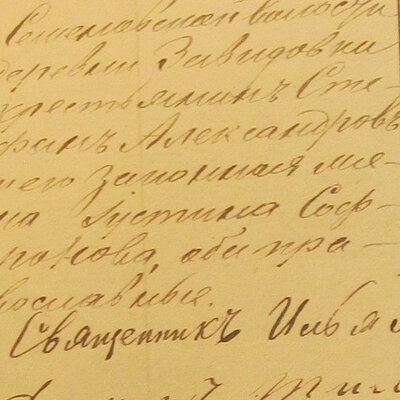 Семеновской волости
деревни Завидовки
крестьянинъ Сте-
фанъ Александровъ
его законная же-
на Иустина Соф-
ронова, оби пра-
вославные.
Священникъ Илья